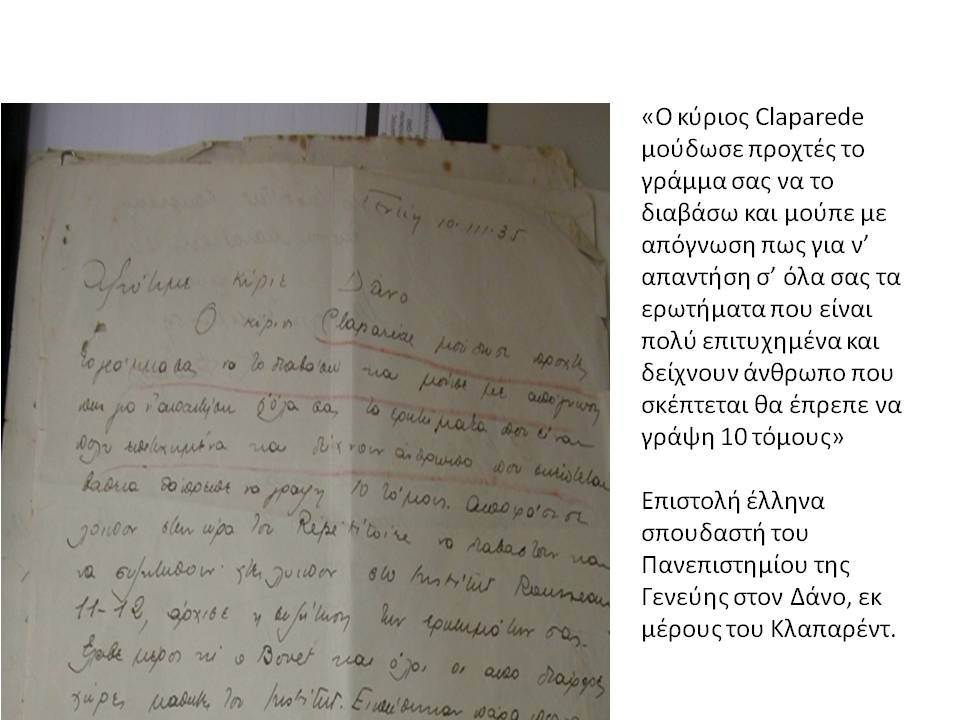 Γενεύη 10.III.35
Αξιότιμε κύριε Δάνο
Ο κύριος Claparède μούδωσε προχτές
το γράμμα σας να το διαβάσω και μούπε με απόγνωση
πως για ν' απαντήση σ' όλα σας τα ερωτήματα που είναι
πολύ επιτυχημένα και δείχνουν άνθρωπο που σκέπτεται
βαθειά θάπρεπε να γράψη 10 τόμους. Αποφάσισε
λοιπόν στην ώρα του Répétitoire να διαβαστούν και
να συζητηθούν λοιπόν στο Institut Rousseau
11-12, άρχισε η συζήτηση των ερωτημάτων σας.
Έλαβε μέρος κι ο Bovet και όλοι οι από διάφορες
χώρες μαθητές του Institut. Ειπώθηκαν πάρα
«Ο κύριος Claparede
μούδωσε προχτές το
γράμμα σας να το
διαβάσω και μούπε με
απόγνωση πως για ν’
απαντήση σ’ όλα σας τα
ερωτήματα που είναι
πολύ επιτυχημένα και
δείχνουν άνθρωπο που
σκέπτεται θα έπρεπε να
γράψη 10 τόμους»
Επιστολή έλληνα
σπουδαστή του
Πανεπιστημίου της
Γενεύης στον Δάνο, εκ
μέρους του Κλαπαρέντ.